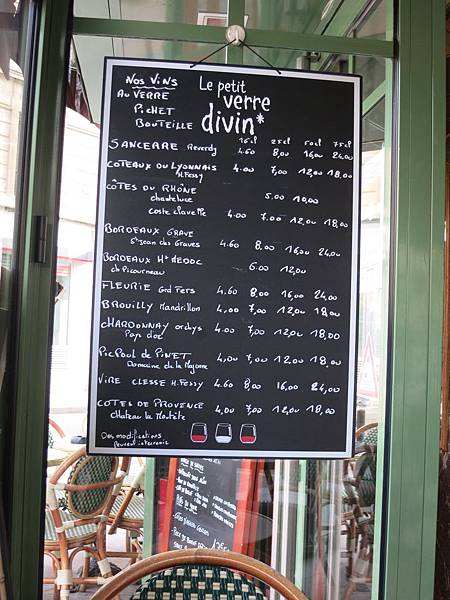 Nos Vins
Au Verre
Pichet
Bouteille
Le petit
verre
divin*
15cl 25cl 50cl 75cl
SANCERRE Reverdy 4.60 8,00 16,00 24,00
COTEAUX DU LYONNAIS 4.00 7,00 12,00 18,00
H.Fessy
CÔTES DU RHÔNE 5.00 10,00
chanteluce
coste clavelle 4.00 7.00 12,00 18,00
BORDEAUX GRAVE 4.60 8.00 16,00 24,00
St Jean des Graves
BORDEAUX Ht MEDOC 6.00 12,00
ch Picourneau
FLEURIE Grd Fers 4.60 8,00 16,00 24,00
BROUILLY Mandrillon 4,00 7,00 12,00 18,00
CHARDONNAY 4.00 7,00 12,00 18,00
Pays d'oc
PICPOUL DE PINET 4,00 7,00 12,00 18,00
Domaine de la Mayonne
VIRE CLESSE H.FESSY 4.60 8,00 16,00 24,00
COTES DE PROVENCE 4,00 7,00 12,00 18,00
Chateau la
Des modifications
Peuvent intervenir